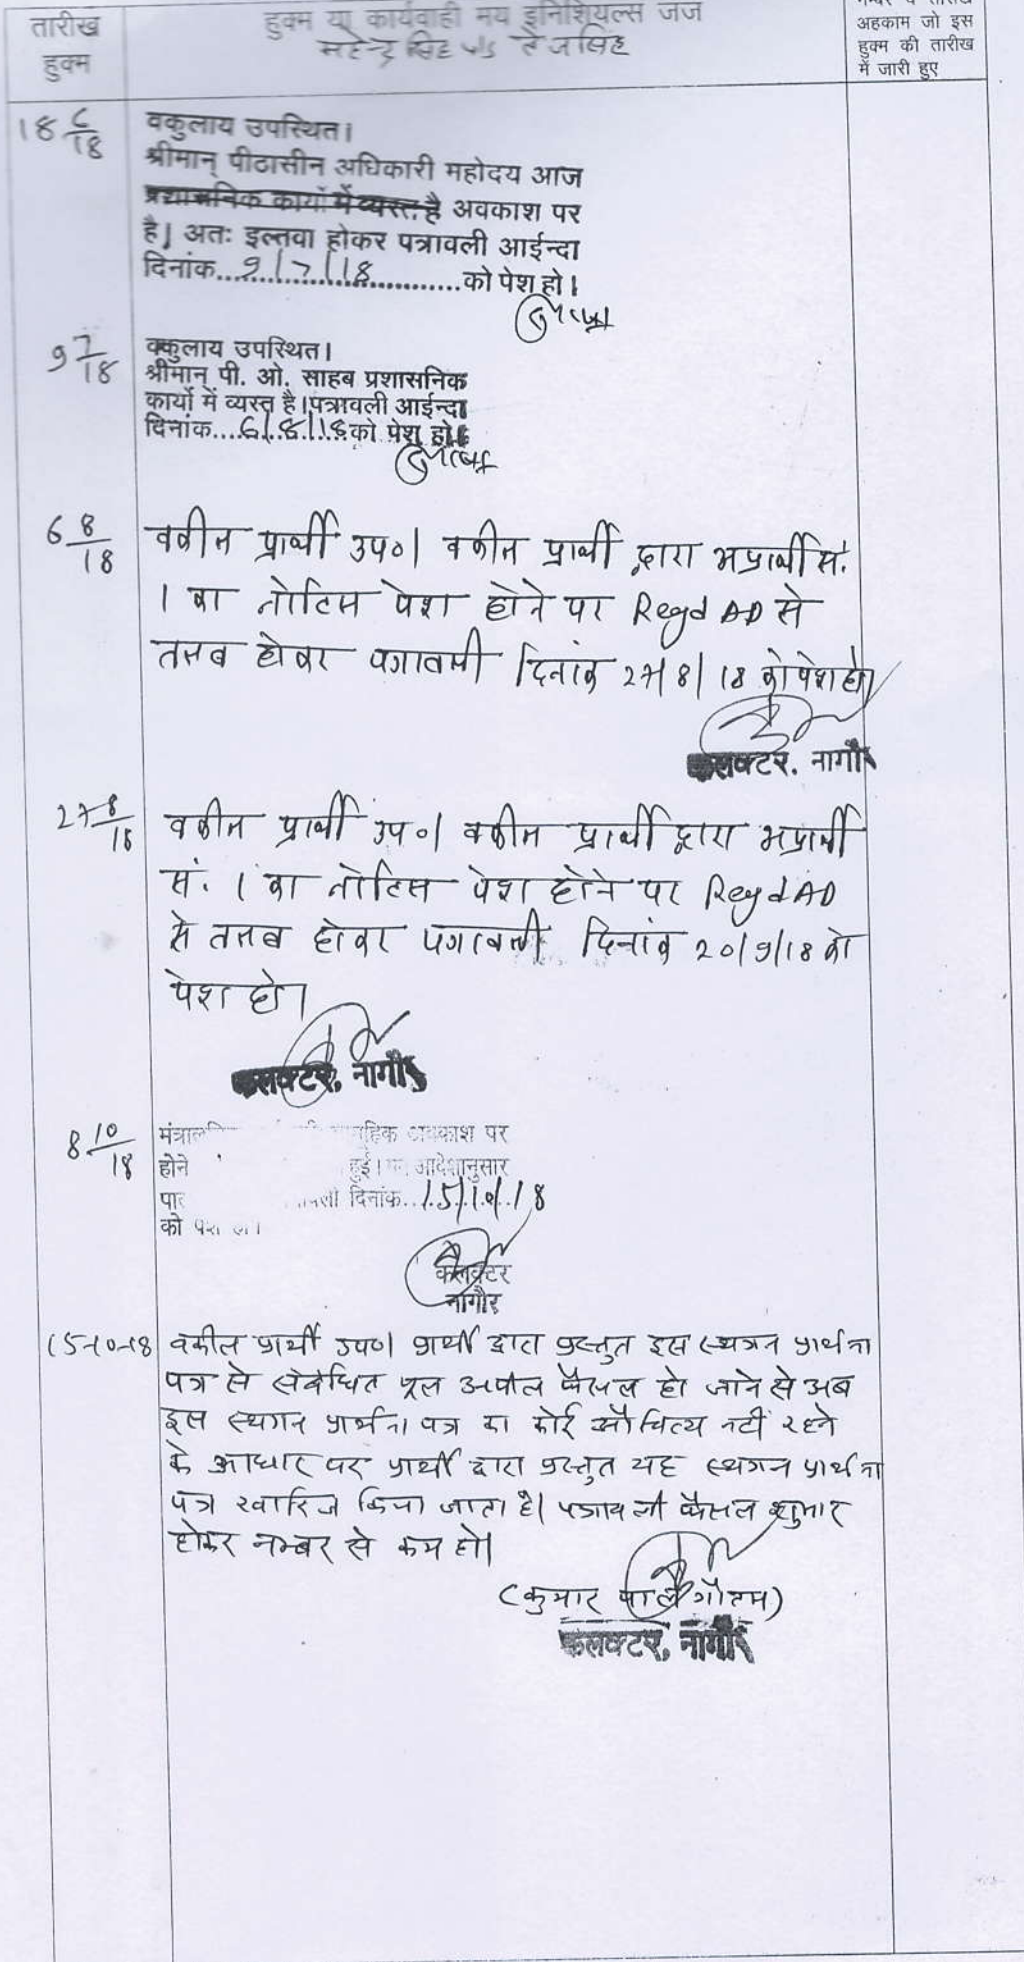 तारीख
हुक्म
हुक्म या कार्यवाही मय इनिशियल्स जज
महेन्द्र सिंह v/s तेजसिंह
अहकाम जो इस
हुक्म की तारीख
में जारी हुए
18 6/18
वकुलाय उपस्थित।
श्रीमान् पीठासीन अधिकारी महोदय आज
प्रशासनिक कार्यों में व्यस्त है अवकाश पर
है। अतः इल्तवा होकर पत्रावली आईन्दा
दिनांक...9/7/18...को पेश हो।
9 7/18
वकुलाय उपस्थित।
श्रीमान् पी. ओ. साहब प्रशासनिक
कार्यो में व्यस्त है।पत्रावली आईन्दा
दिनांक....6/8/18को पेश हो।
6 8/18
वकील प्रार्थी उप०। वकील प्रार्थी द्वारा अप्रार्थी सं.
1 का नोटिस पेश होने पर Regd AD से
तलब होकर पत्रावली दिनांक 27/8/18 को पेश हो।
कलक्टर, नागौर
27 8/18
वकील प्रार्थी उप०। वकील प्रार्थी द्वारा अप्रार्थी
सं. 1 का नोटिस पेश होने पर Regd AD
से तलब होकर पत्रावली दिनांक 20/9/18 को
पेश हो।
कलक्टर, नागौर
8 10/18
अवकाश पर
होने हुई। आदेशानुसार
दिनांक..15/10/18
को पेश हो।
कलक्टर
नागौर
15-10-18
वकील प्रार्थी उप०। प्रार्थी द्वारा प्रस्तुत इस स्थगन प्रार्थना
पत्र से संबंधित मूल अपील फैसल हो जाने से अब
इस स्थगन प्रार्थना पत्र का कोई औचित्य नहीं रहने
के आधार पर प्रार्थी द्वारा प्रस्तुत यह स्थगन प्रार्थना
पत्र खारिज किया जाता है। पत्रावली फैसल शुमार
होकर नम्बर से कम हो।
(कुमार पाल गौतम)
कलक्टर, नागौर